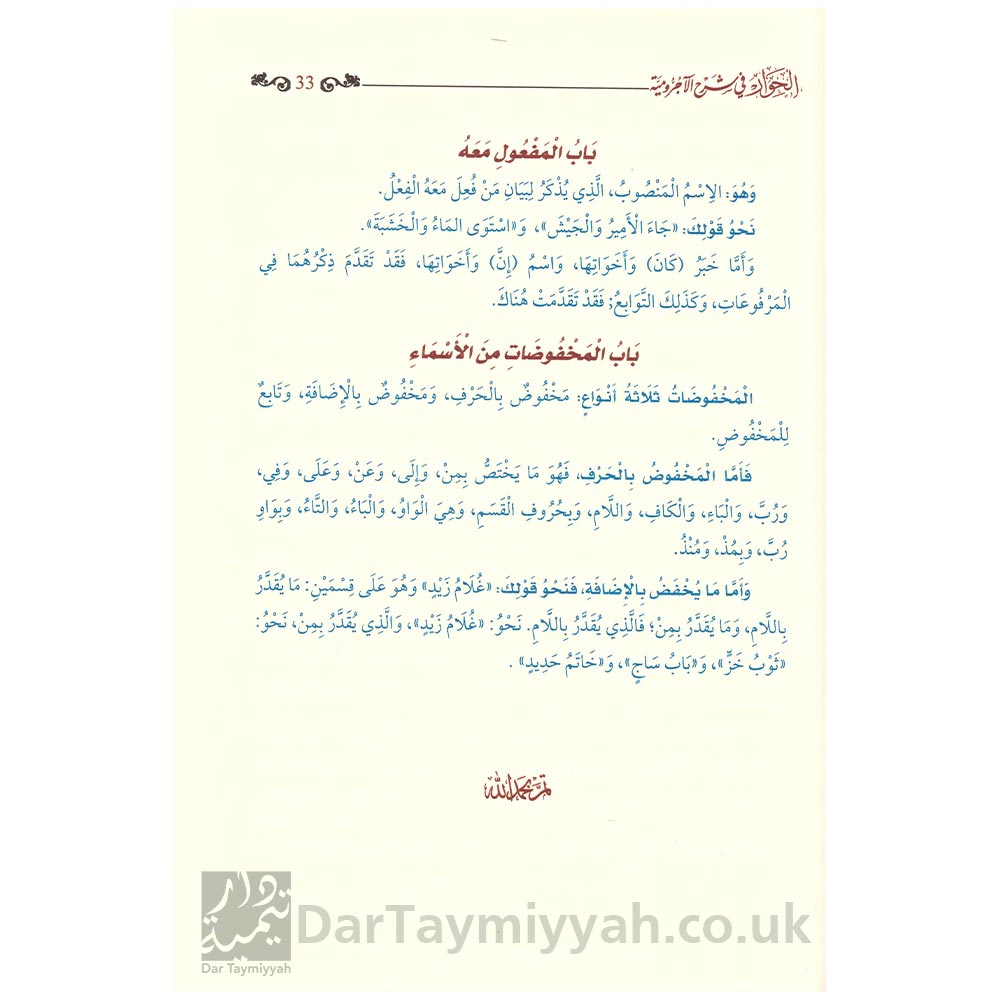 الحِوَارُ فِي شَرْحِ الآجُرُّومِيَّة
33
بَابُ الْمَفْعُولِ مَعَهُ
وَهُوَ: الِاسْمُ الْمَنْصُوبُ، الَّذِي يُذْكَرُ لِبَيَانِ مَنْ فُعِلَ مَعَهُ الْفِعْلُ.
نَحْوُ قَوْلِكَ: «جَاءَ الْأَمِيرُ وَالْجَيْشَ»، وَ«اسْتَوَى المَاءُ وَالْخَشَبَةَ».
وَأَمَّا خَبَرُ (كَانَ) وَأَخَوَاتِهَا، وَاسْمُ (إِنَّ) وَأَخَوَاتِهَا، فَقَدْ تَقَدَّمَ ذِكْرُهُمَا فِي
الْمَرْفُوعَاتِ، وَكَذَلِكَ التَّوَابِعُ; فَقَدْ تَقَدَّمَتْ هُنَاكَ.
بَابُ الْمَخْفُوضَاتِ مِنَ الْأَسْمَاءِ
الْمَخْفُوضَاتُ ثَلَاثَةُ أَنْوَاعٍ: مَخْفُوضٌ بِالْحَرْفِ، وَمَخْفُوضٌ بِالْإِضَافَةِ، وَتَابِعٌ
لِلْمَخْفُوضِ.
فَأَمَّا الْمَخْفُوضُ بِالْحَرْفِ، فَهُوَ مَا يَخْتَصُّ بِمِنْ، وَإِلَى، وَعَنْ، وَعَلَى، وَفِي،
وَرُبَّ، وَالْبَاءِ، وَالْكَافِ، وَاللَّامِ، وَبِحُرُوفِ الْقَسَمِ، وَهِيَ الْوَاوُ، وَالْبَاءُ، وَالتَّاءُ، وَبِوَاوِ
رُبَّ، وَبِمُذْ، وَمُنْذُ.
وَأَمَّا مَا يُخْفَضُ بِالْإِضَافَةِ، فَنَحْوُ قَوْلِكَ: «غُلَامُ زَيْدٍ» وَهُوَ عَلَى قِسْمَيْنِ: مَا يُقَدَّرُ
بِاللَّامِ، وَمَا يُقَدَّرُ بِمِنْ؛ فَالَّذِي يُقَدَّرُ بِاللَّامِ. نَحْوُ: «غُلَامُ زَيْدٍ»، وَالَّذِي يُقَدَّرُ بِمِنْ، نَحْوُ:
«ثَوْبُ خَزٍّ»، وَ«بَابُ سَاجٍ»، وَ«خَاتَمُ حَدِيدٍ» .
تم بحمد الله
دار تيمية
Dar Taymiyyah
DarTaymiyyah.co.uk